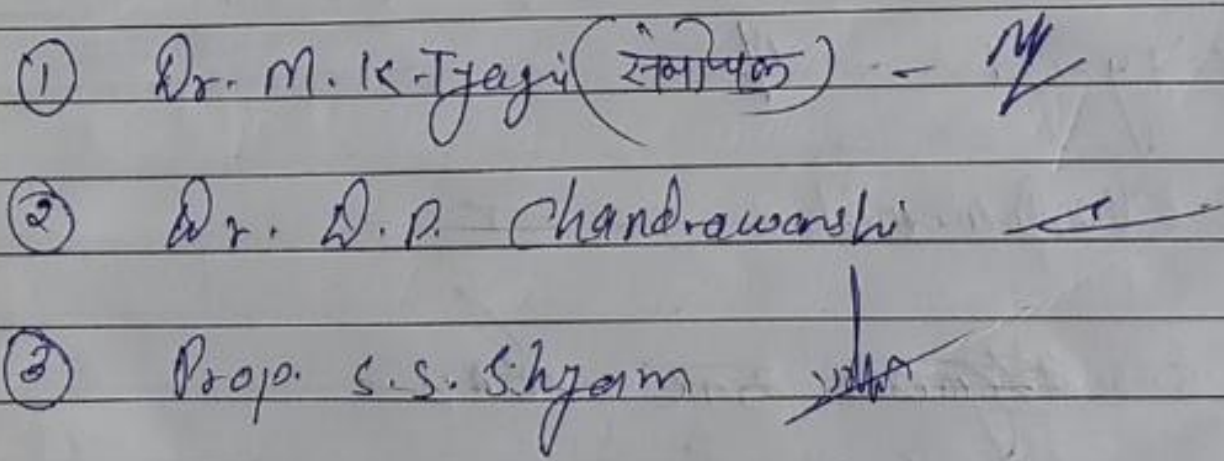 ① Dr. M. K. Tyagi (संयोजक) -
② Dr. D. P. Chandrawanshi
③ Prop. S. S. Shyam